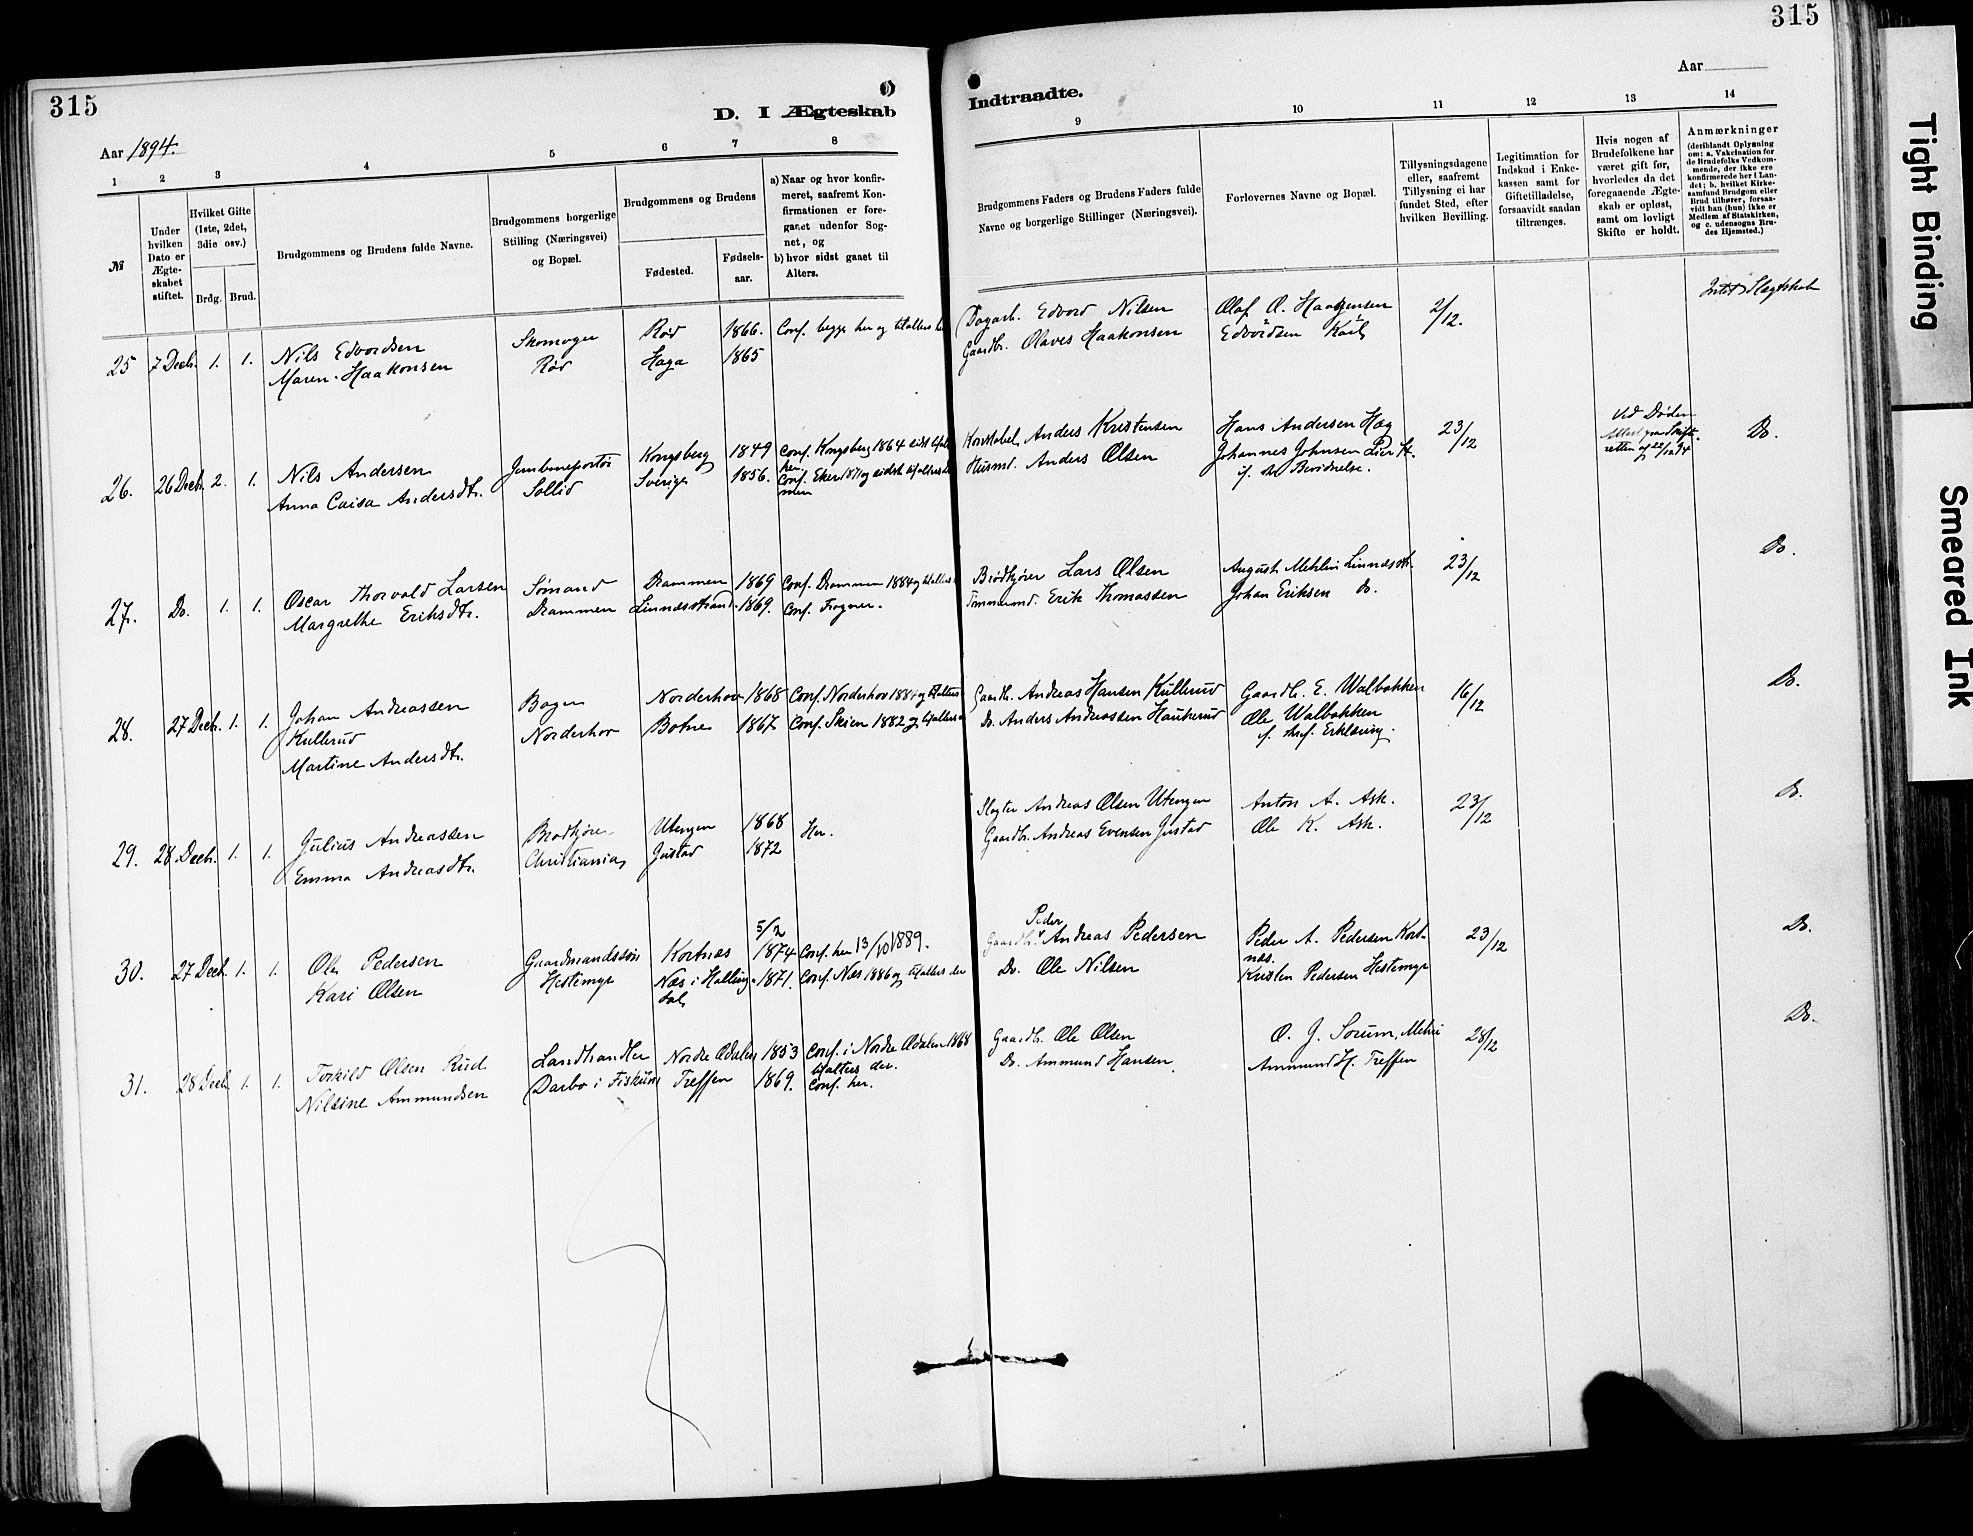 315
315
D. I Ægteskab
Indtraadte.
Aar 1894.
Aar
1
2
3
4
5
6
7
8
9
10
11
12
13
14
№
Under hvilken Dato er Ægteskabet stiftet.
Hvilket Gifte (1ste, 2det, 3die osv.)
Brdg.
Brud.
Brudgommens og Brudens fulde Navne.
Brudgommens borgerlige Stilling (Næringsvei) og Bopæl.
Brudgommens og Brudens
Fødested.
Fødsels-aar.
a) Naar og hvor konfirmeret, saafremt Konfirmationen er foregaaet udenfor Sognet, og
b) hvor sidst gaaet til Alters.
Brudgommens Faders og Brudens Faders fulde Navne og borgerlige Stillinger (Næringsvei).
Forlovernes Navne og Bopæl.
Tillysningsdagene eller, saafremt Tillysning ei har fundet Sted, efter hvilken Bevilling.
Legitimation for Indskud i Enkekassen samt for Giftetilladelse, forsaavidt saadan tiltrænges.
Hvis nogen af Brudefolkene har været gift før, hvorledes da det foregaaende Ægteskab er opløst, samt om lovligt Skifte er holdt.
Anmærkninger
(deriblandt Oplysning om: a. Vakcination for de Brudefolks Vedkommende, der ikke ere konfirmerede her i Landet; b. hvilket Kirkesamfund Brudgom eller Brud tilhører, forsaavidt han (hun) ikke er Medlem af Statskirken, og c. udensogns Brudes Hjemsted.)
25 7 Decb. 1. 1. Nils Edvordsen Skomager Rød 1866. Conf. begge her og tilalters her Dagarb. Edvord Nilsen Olaf O. Haakensen 2/12. Intet Slægtskab
Maren Haakonsen Rød Haga 1865 Gaardbr. Olaves Haakonsen Edvordsen
26. 26 Decb. 2. 1. Nils Andersen Jernbaneportør Kongsberg 1849 Conf. Kongsberg 1864 sidst tilalters her Konstabel Anders Kristensen Hans Andersen Hæg 23/12 Ved Døden Do.
Anna Caisa Andersdtr. Sollid Sverige 1856. Conf. Eker 1871 og sidst tilalters Husmd. Anders Olsen Johannes Johnsen Lier St.
if. Bevidnelse.
Attest fra Skifteretten af 22/12 94
27. Do. 1. 1. Oscar Thorvald Larsen Sømand Drammen 1869 Conf. Drammen 1884 og tilalters Brødkjører Lars Olsen August Mehlin Linnæsstr. 23/12 Do.
Margrethe Eriksdtr. Drammen Linnæsstrand 1869. Conf. Frogner. Tømmermd. Erik Thomassen Johan Eriksen Do.
28. 27 Decb. 1. 1. Johan Andreassen Bager Norderhov 1868 Conf. Norderhov 1884 og tilalters Gaardbr. Andreas Hansen Kullerud Gaardbr. E. Walbakken 16/12 Do.
Kullerud Norderhov Botne 1867 Conf. Skien 1882 og tilalters Do. Anders Andreassen Haukerud Ole Walbakken
Martine Andersdtr. if. skrf. Erklæring.
29. 28 Decb. 1. 1. Julius Andreassen Brødkjører Utengen 1868 Her. Slagter Andreas Olsen Utengen Anton A. Ask. 23/12 Do.
Emma Andreasdtr. Christiania Justad 1872 Gaardbr. Andreas Evensen Justad Ole K. Ask.
30. 27 Decb. 1. 1. Ole Pedersen Gaardmandssøn Kortnæs 5/2 1874 Conf. her 13/10 1889. Gaardbr. Peder Andreas Pedersen Peder A. Pedersen Kortnæs. 23/12 Do.
Kari Olsen Hestemyr Næs i Hallingdal 1871. Conf. Næs 1886 og tilalters der Do. Ole Nilsen Kristen Pedersen Hestemyr
31. 28 Decb. 1. 1. Torkild Olsen Rud Landhandler Nordre Odalen 1853 Conf. i Nordre Odalen 1868 tilalters der. Gaardbr. Ole Olsen O. J. Sorum, Mehri 28/12 Do.
Nilsine Ammundsen Darbo i Fiskum Treffen 1869. Conf. her. Do. Ammund Hansen Ammund H. Treffen
Tight Binding
Smeared Ink